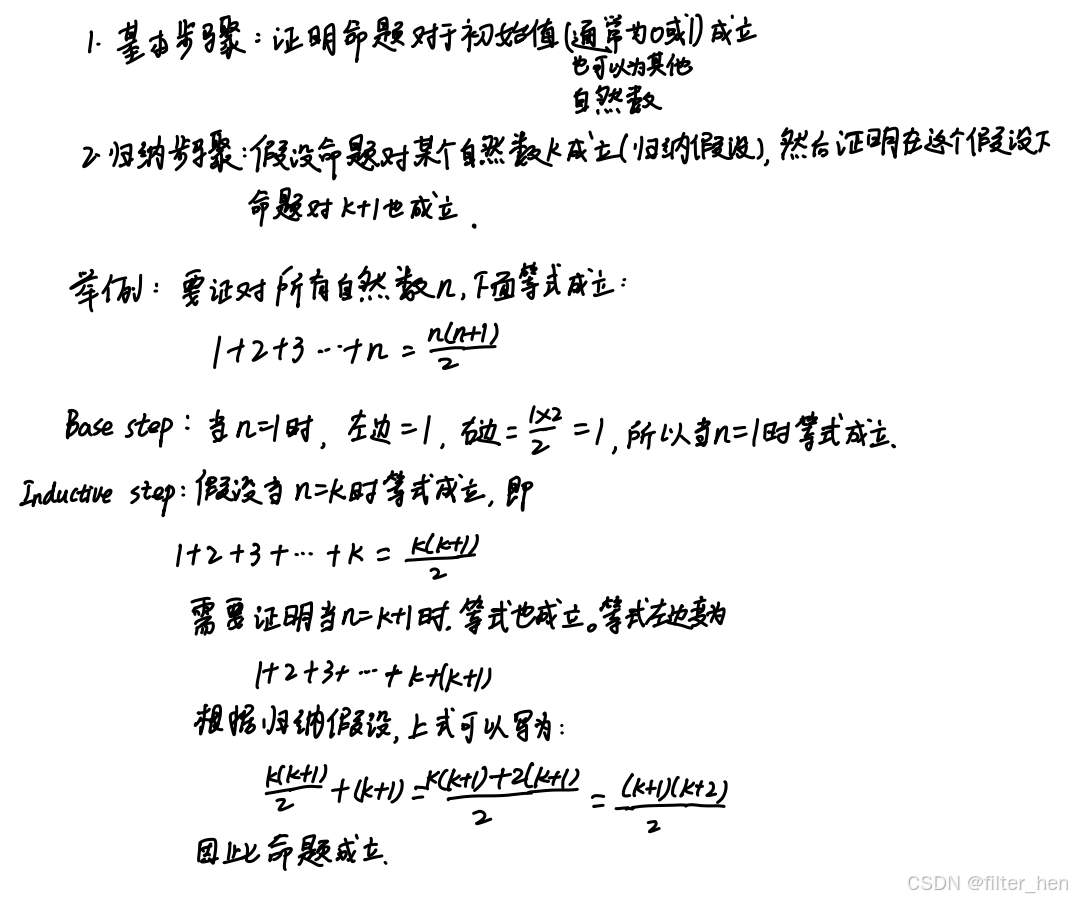 1. 基本步骤：证明命题对于初始值(通常为0或1)成立
也可以为其他
自然数
2. 归纳步骤：假设命题对某个自然数k成立(归纳假设)，然后证明在这个假设下
命题对k+1也成立.
举例：要证对所有自然数n，下面等式成立：
1+2+3 ⋯+n = n(n+1)/2
Base step：当n=1时，左边=1，右边=1×2/2=1，所以当n=1时等式成立.
Inductive step：假设当n=k时等式成立，即
1+2+3+⋯+k = k(k+1)/2
需要证明当n=k+1时.等式也成立。等式左边变为
1+2+3+⋯+k+(k+1)
根据归纳假设，上式可以写为：
k(k+1)/2+(k+1)=k(k+1)+2(k+1)/2=(k+1)(k+2)/2
因此命题成立.
CSDN @filter_hen